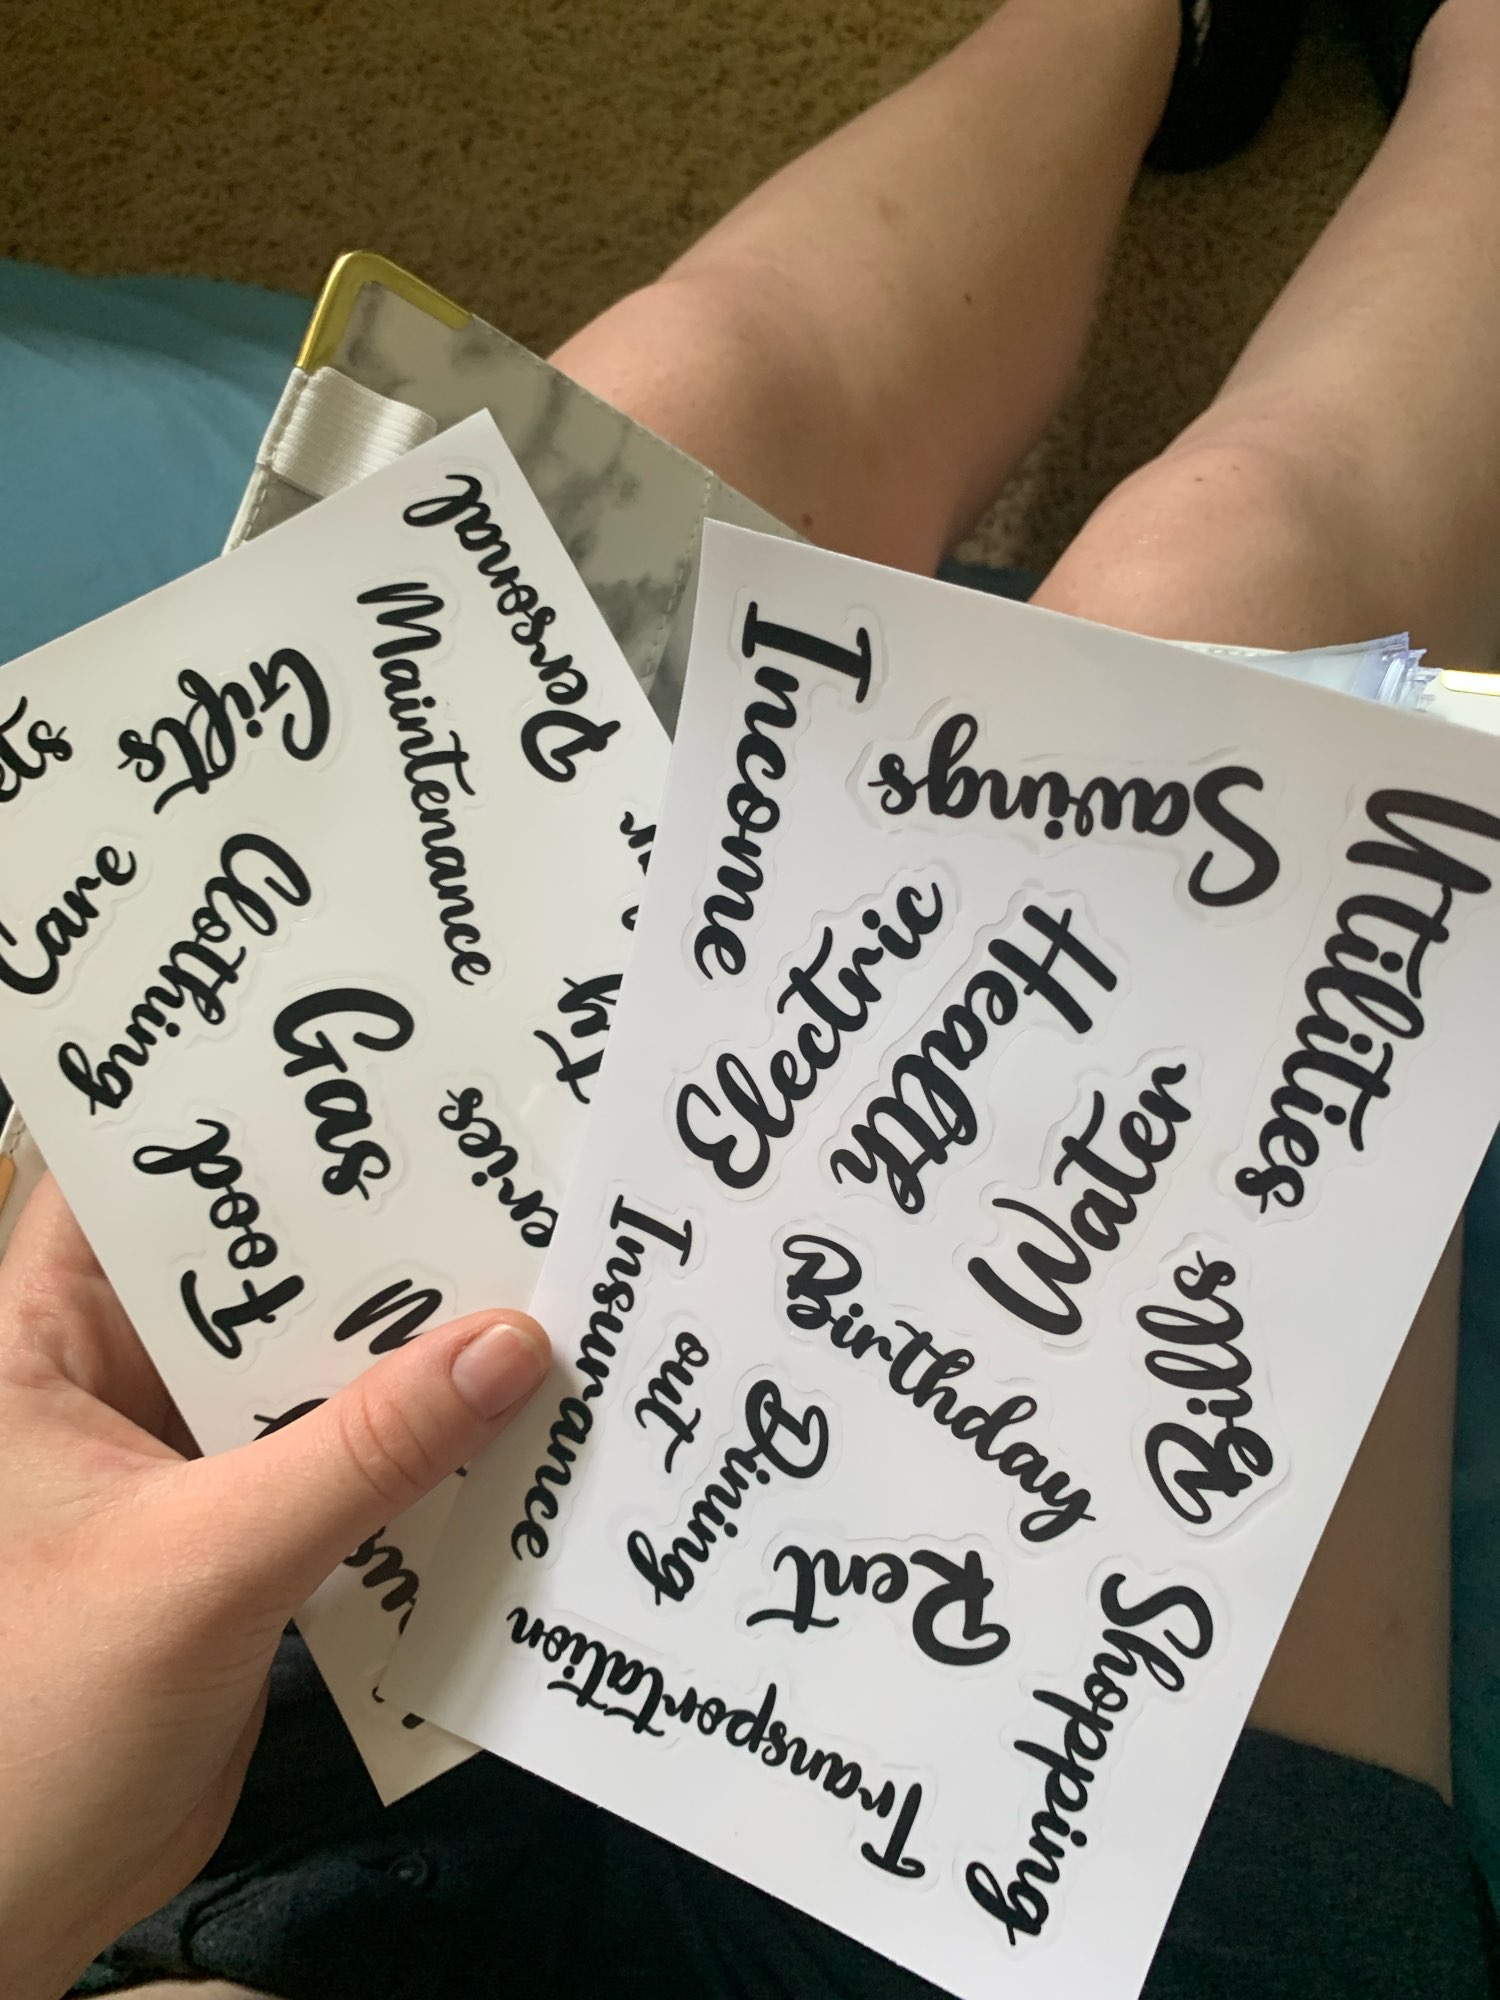 Personal
Maintenance
Gifts
Care
Clothing
Gas
Food
Income
Savings
Utilities
Electric
Health
Water
Bills
Insurance
Birthday
Dining
out
Rent
Shopping
Transportation